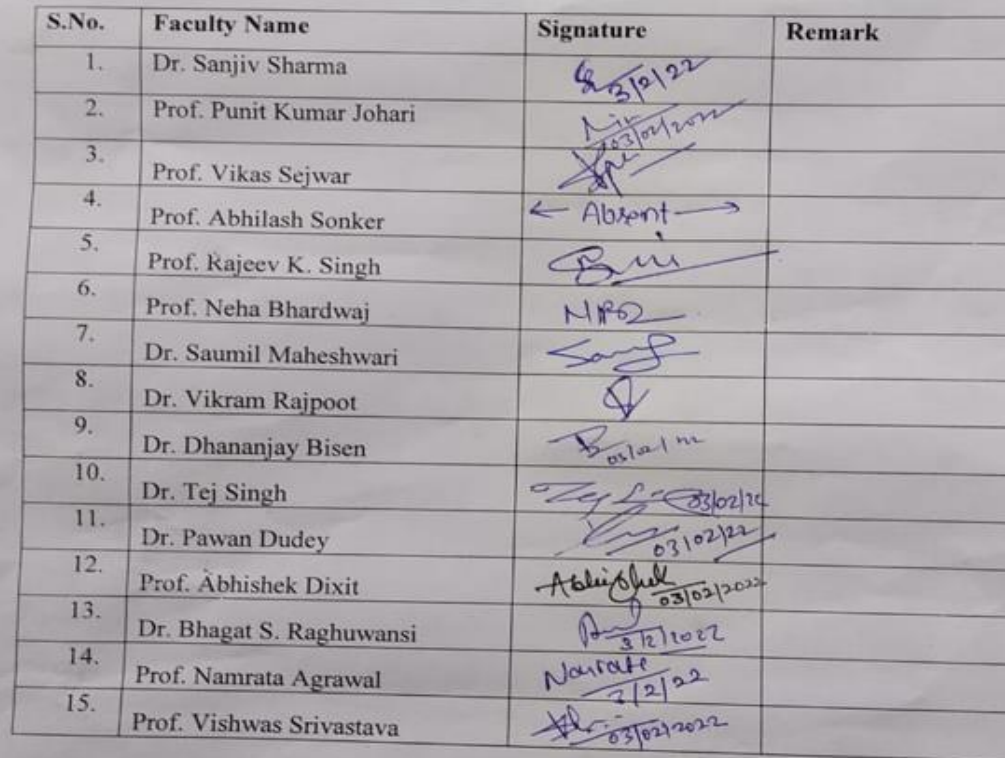 S.No. Faculty Name Signature Remark
1. Dr. Sanjiv Sharma 3/2/22
2. Prof. Punit Kumar Johari 03/02/2022
3. Prof. Vikas Sejwar
4. Prof. Abhilash Sonker ← Absent →
5. Prof. Rajeev K. Singh
6. Prof. Neha Bhardwaj
7. Dr. Saumil Maheshwari
8. Dr. Vikram Rajpoot
9. Dr. Dhananjay Bisen
10. Dr. Tej Singh
11. Dr. Pawan Dudey 03/02/22
12. Prof. Abhishek Dixit Abhishek 03/02/2022
13. Dr. Bhagat S. Raghuwansi 3/2/2022
14. Prof. Namrata Agrawal 3/2/22
15. Prof. Vishwas Srivastava 03/02/2022